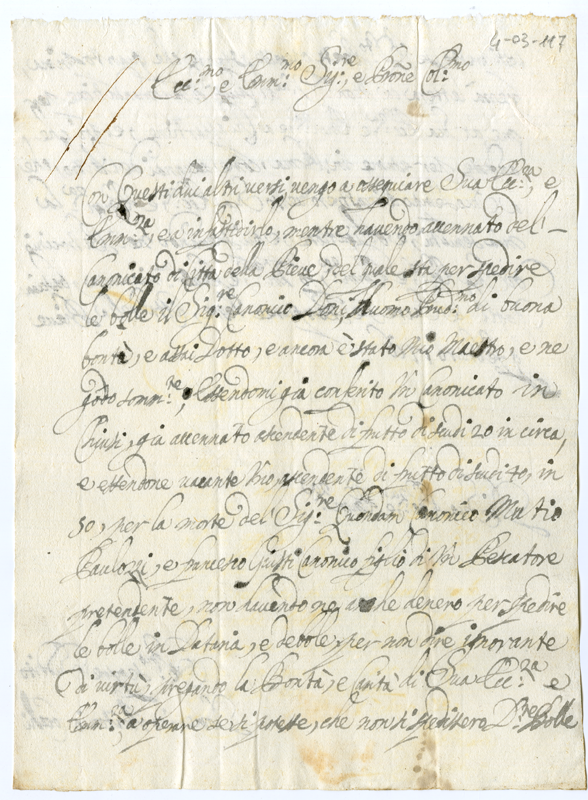 4-03-117
Ecc:mo, e Emm:mo Sig:re, e Prone Col:mo
Con Questi dui altri versi, vengo a ossequiare Sua Ecc:za, e
Emm:za, e a infastidirlo, mentre havendo accennato del-
Canonicato di Città della Pieve, del quale sta per spedire
le bolle il Sig:re Canonico Huomo di buona
bontà, e assai Dotto, e ancora è stato Mio Maestro, e ne
godo somm:te, Essendomi già conferito Un Canonicato in
Chiusi, già accennato ascendente di frutto di scudi 20 in circa,
e essendone vacante Uno, ascendente di frutto di scudi 40, in
50, per la morte del Sig:re Quondam Canonico Mutio
Paulozzi, e Francesco Giusti Canonico figlio di Un Pescatore
pretendente, non havendo ne anche denero per spedire
le bolle in Dataria, e debole, per non dire ignorante
di virtù, pregando la Bontà, e Carità di Sua Ecc:za e
Emm:za, a operare se si potesse, che non si spedissero D:e Bolle